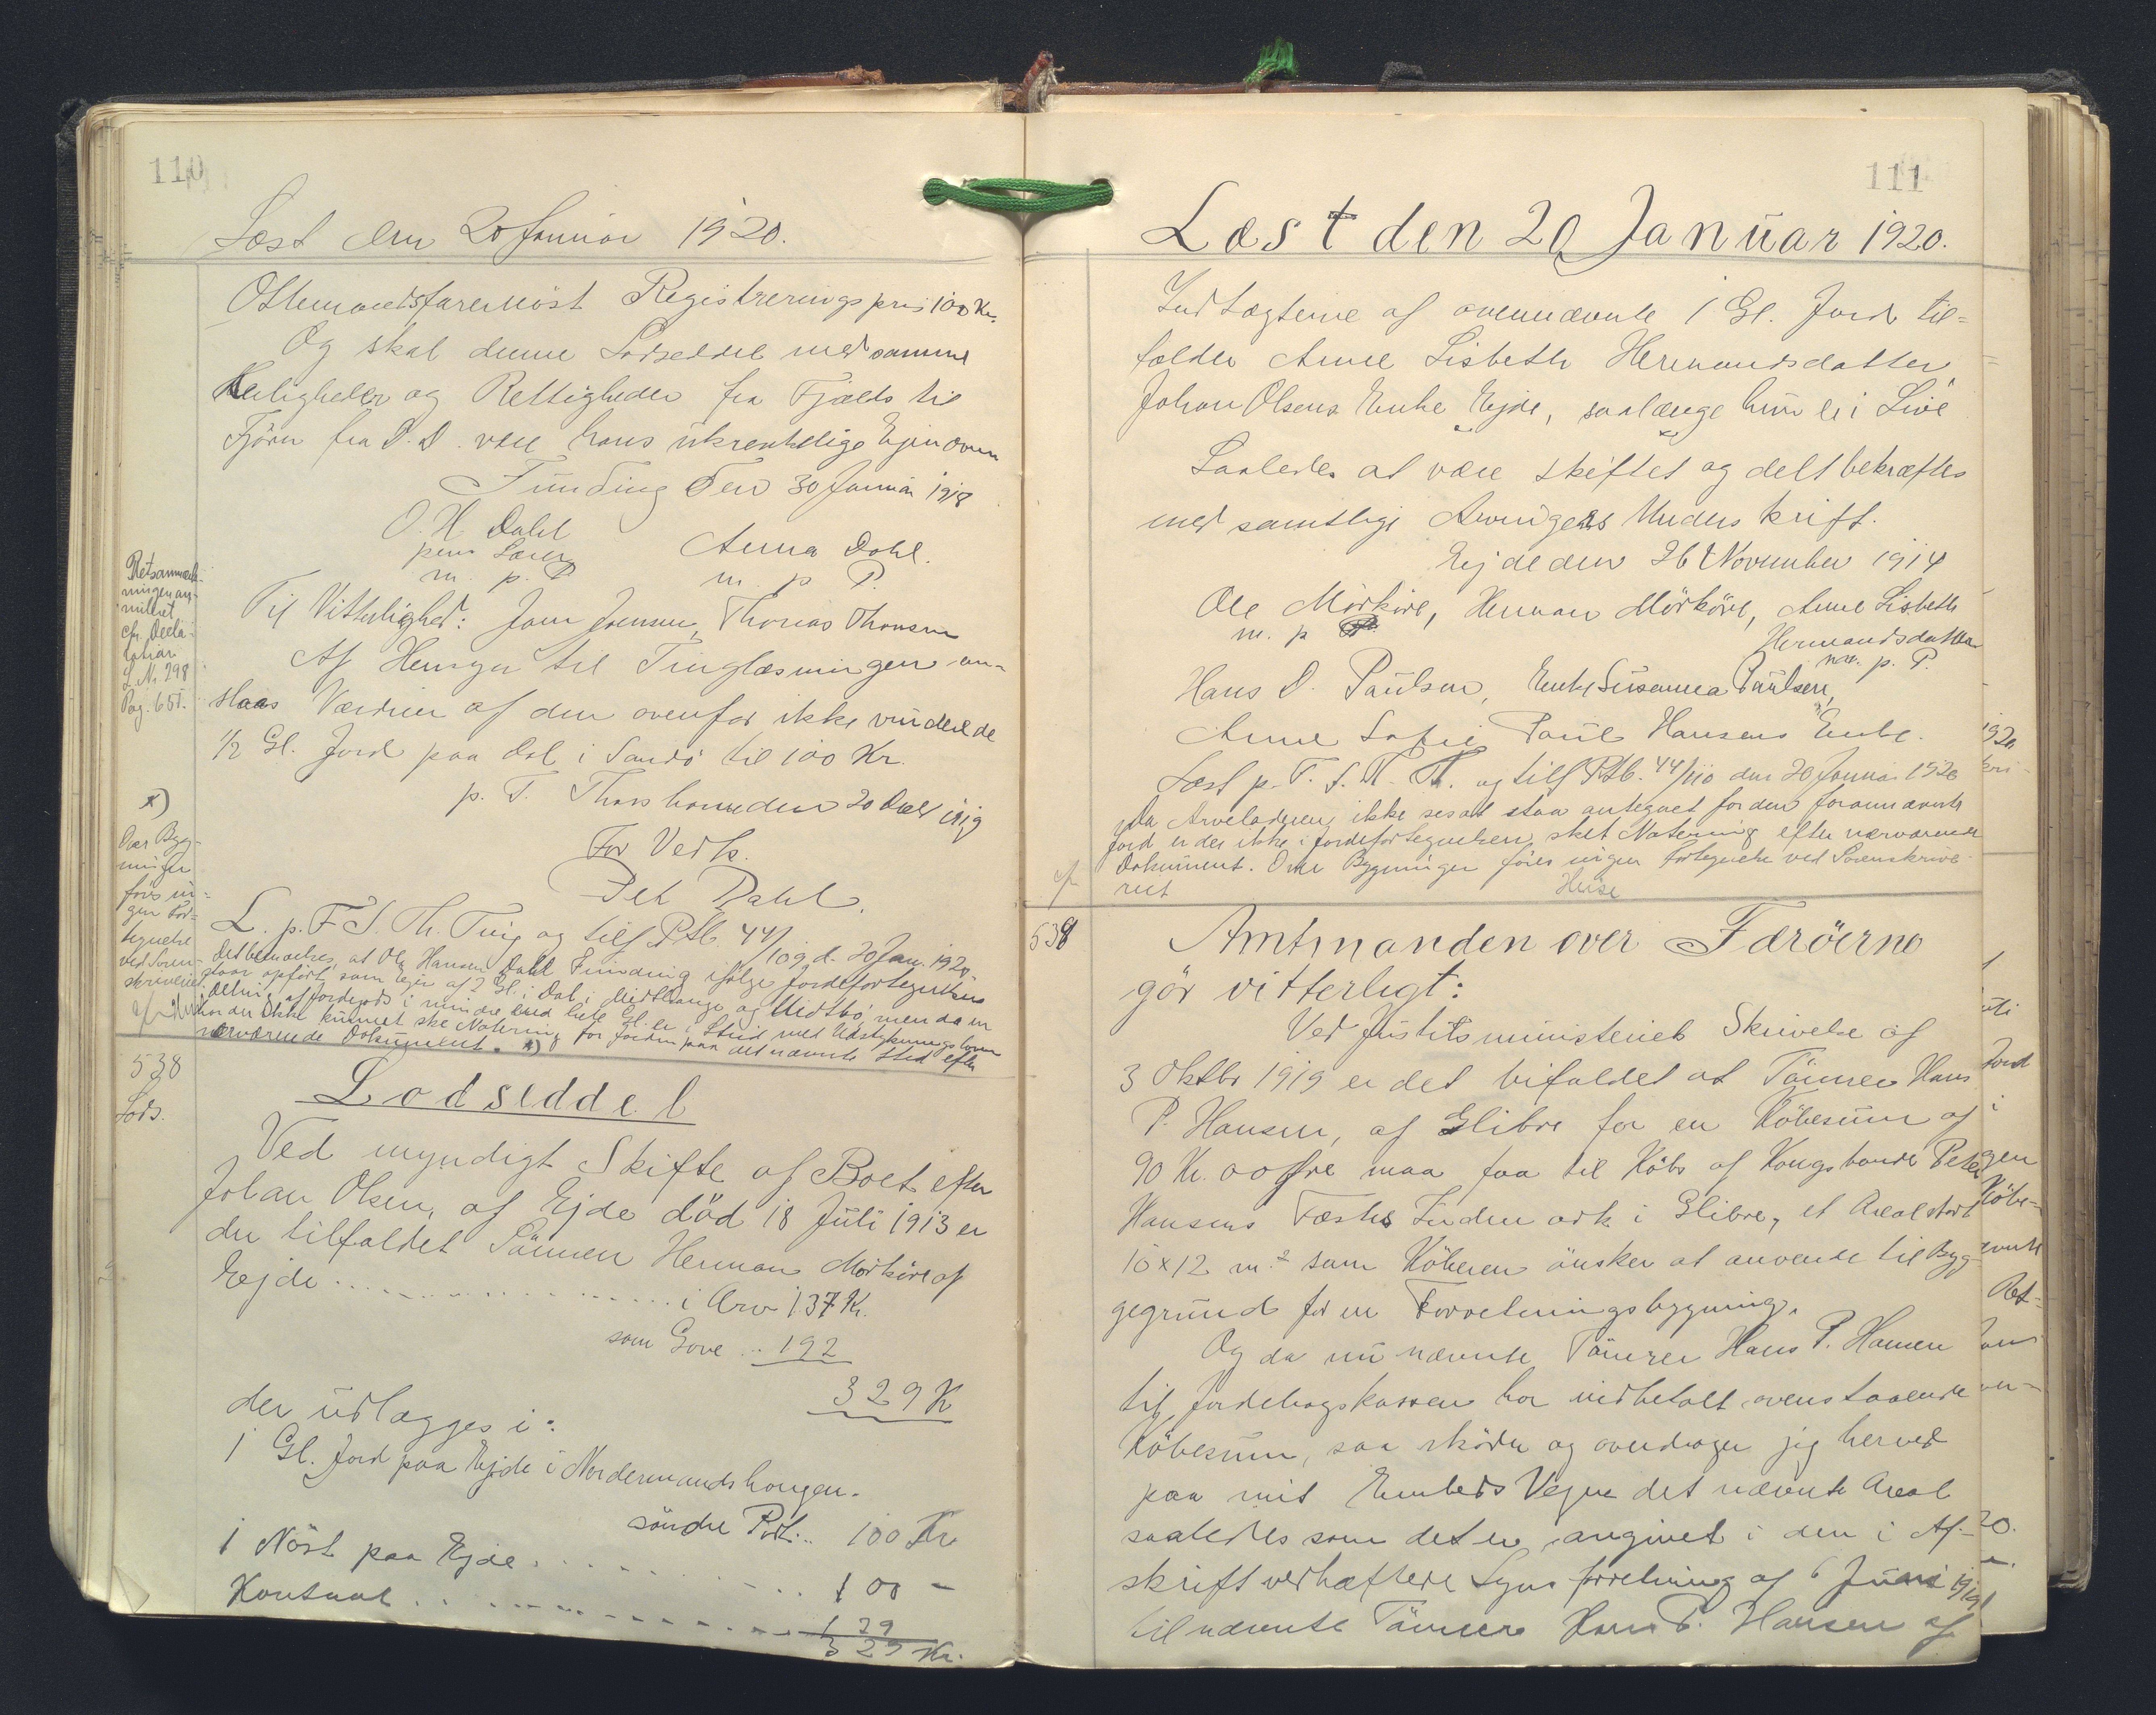 110
Læst den 20 Januar 1920.
Registrerings pris 100 Kr.
Og skal denne Lodseddel med samme
Herligheder og Rettigheder fra Fjelds til
Fjøru fra D. D. være hans ukrænkelige Ejendom
Funding den 30 Januar 1918
O. H. Dahl
pens Lærer
m. p. P.
Anna Dahl.
m. p. P.
Til Vitterlighed: Joen Joensen, Thomas Thomsen
Af Hensyn til Tinglæsningen an-
slaas Værdien af den ovenfor ikke vurderede
1/2 Gl. Jord paa Dal i Sandö til 100 Kr.
p. T. Thorshavn den 20 Decb 1919
For Vedk.
Dahl.
L. p. F. S. Th. Ting og tilf Ptb. 44/109 d. 20 Jan. 1920.
Det bemærkes, at Ole Hansen Dahl Funding ifølge Jordefortegnelsen
staar opført som Ejer af 2 Gl. i Dal, i Midthauge og Midtbö, men da en
Deling af Jordegods i mindre end hele Gl. er i Strid med Udstykningsloven
har der ikke kunnet ske Notering for Jorden paa det nævnte Sted efter
nærværende Dokument. x)
Retsanmærk-
ningen an-
nulleret
cfr. Dekla-
ration
L. Nr. 298
Pag. 651.
x)
Over Byg-
ninger
føres in-
gen For-
tegnelse
ved Soren-
skriveriet.
538
Lods.
Lodseddel
Ved myndigt Skifte af Boet efter
Johan Olsen, af Ejde död 18 Juli 1913 er
der tilfaldet Sönnen Herman Mörköre af
Ejde . . . . . i Arv 137 Kr.
som Gave .. 192
329 K
der udlægges i:
1 Gl. Jord paa Ejde i Nordermandshougen.
söndre Part.. 100 Kr
1 Nöst paa Ejde . . . . . 100 -
Kontant . . . . . 129
329 Kr.
111
Læst den 20 Januar 1920.
Indtægterne af ovennævnte 1 Gl. Jord til=
falder Anne Lisbeth Hermandsdatter
Johan Olsens Enke Ejde, saalænge hun er i Live
Saaledes at være skiftet og delt bekræftes
med samtlige Arvingers Underskrift.
Ejde den 26 November 1914
Ole Mörköre, Herman Mörköre, Anne Lisbeth
m. p. P.
Hermandsdatter
m. p. P.
Hans D. Paulsen, Enke Susanna Paulsen,
Anne Sofie Poul Hansens Enke.
Læst p. F. S. T. Th. og tilf Ptb. 44/110 den 20 Januar 1920
Da Arveladeren ikke ses at staa antegnet for den forannævnte
Jord er der ikke i Jordefortegnelsen sket Notering efter nærværende
Dokument. Over Bygninger føres ingen Fortegnelse ved Sorenskrive-
riet
538
Amtmanden over Færöerne
gör vitterligt:
Ved Justitsministeriets Skrivelse af
3 Oktbr 1919 er det bifaldet at Tömrer Hans
P. Hansen, af Glibre for en Köbesum af
90 Kr. 00 Øre maa faa til Köbs af Kongsbonde Peter
Hansens Fæste i Glibre, et Areal stort
15 x 12 m.² som Köberen önsker at anvende til Byg-
gegrund for en Forretningsbygning.
Og da nu nævnte Tömrer Hans P. Hansen
til Jordebogskassen har indbetalt ovenstaaende
Köbesum, saa sköder og overdrager jeg herved
paa mit Embeds Vegne det nævnte Areal
saaledes som det er angivet i den i Af-
skrift vedhæftede Synsforretning af 6 Juni 1919
til nævnte Tömrer Hans P. Hansen af